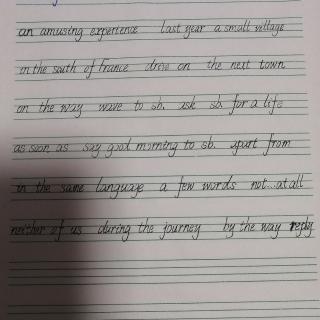 an amusing experience last year a small village
in the south of France drive on the next town
on the way wave to sb. ask sb. for a life
as soon as say good morning to sb. apart from
in the same language a few words not...at all
neither of us during the journey by the way reply